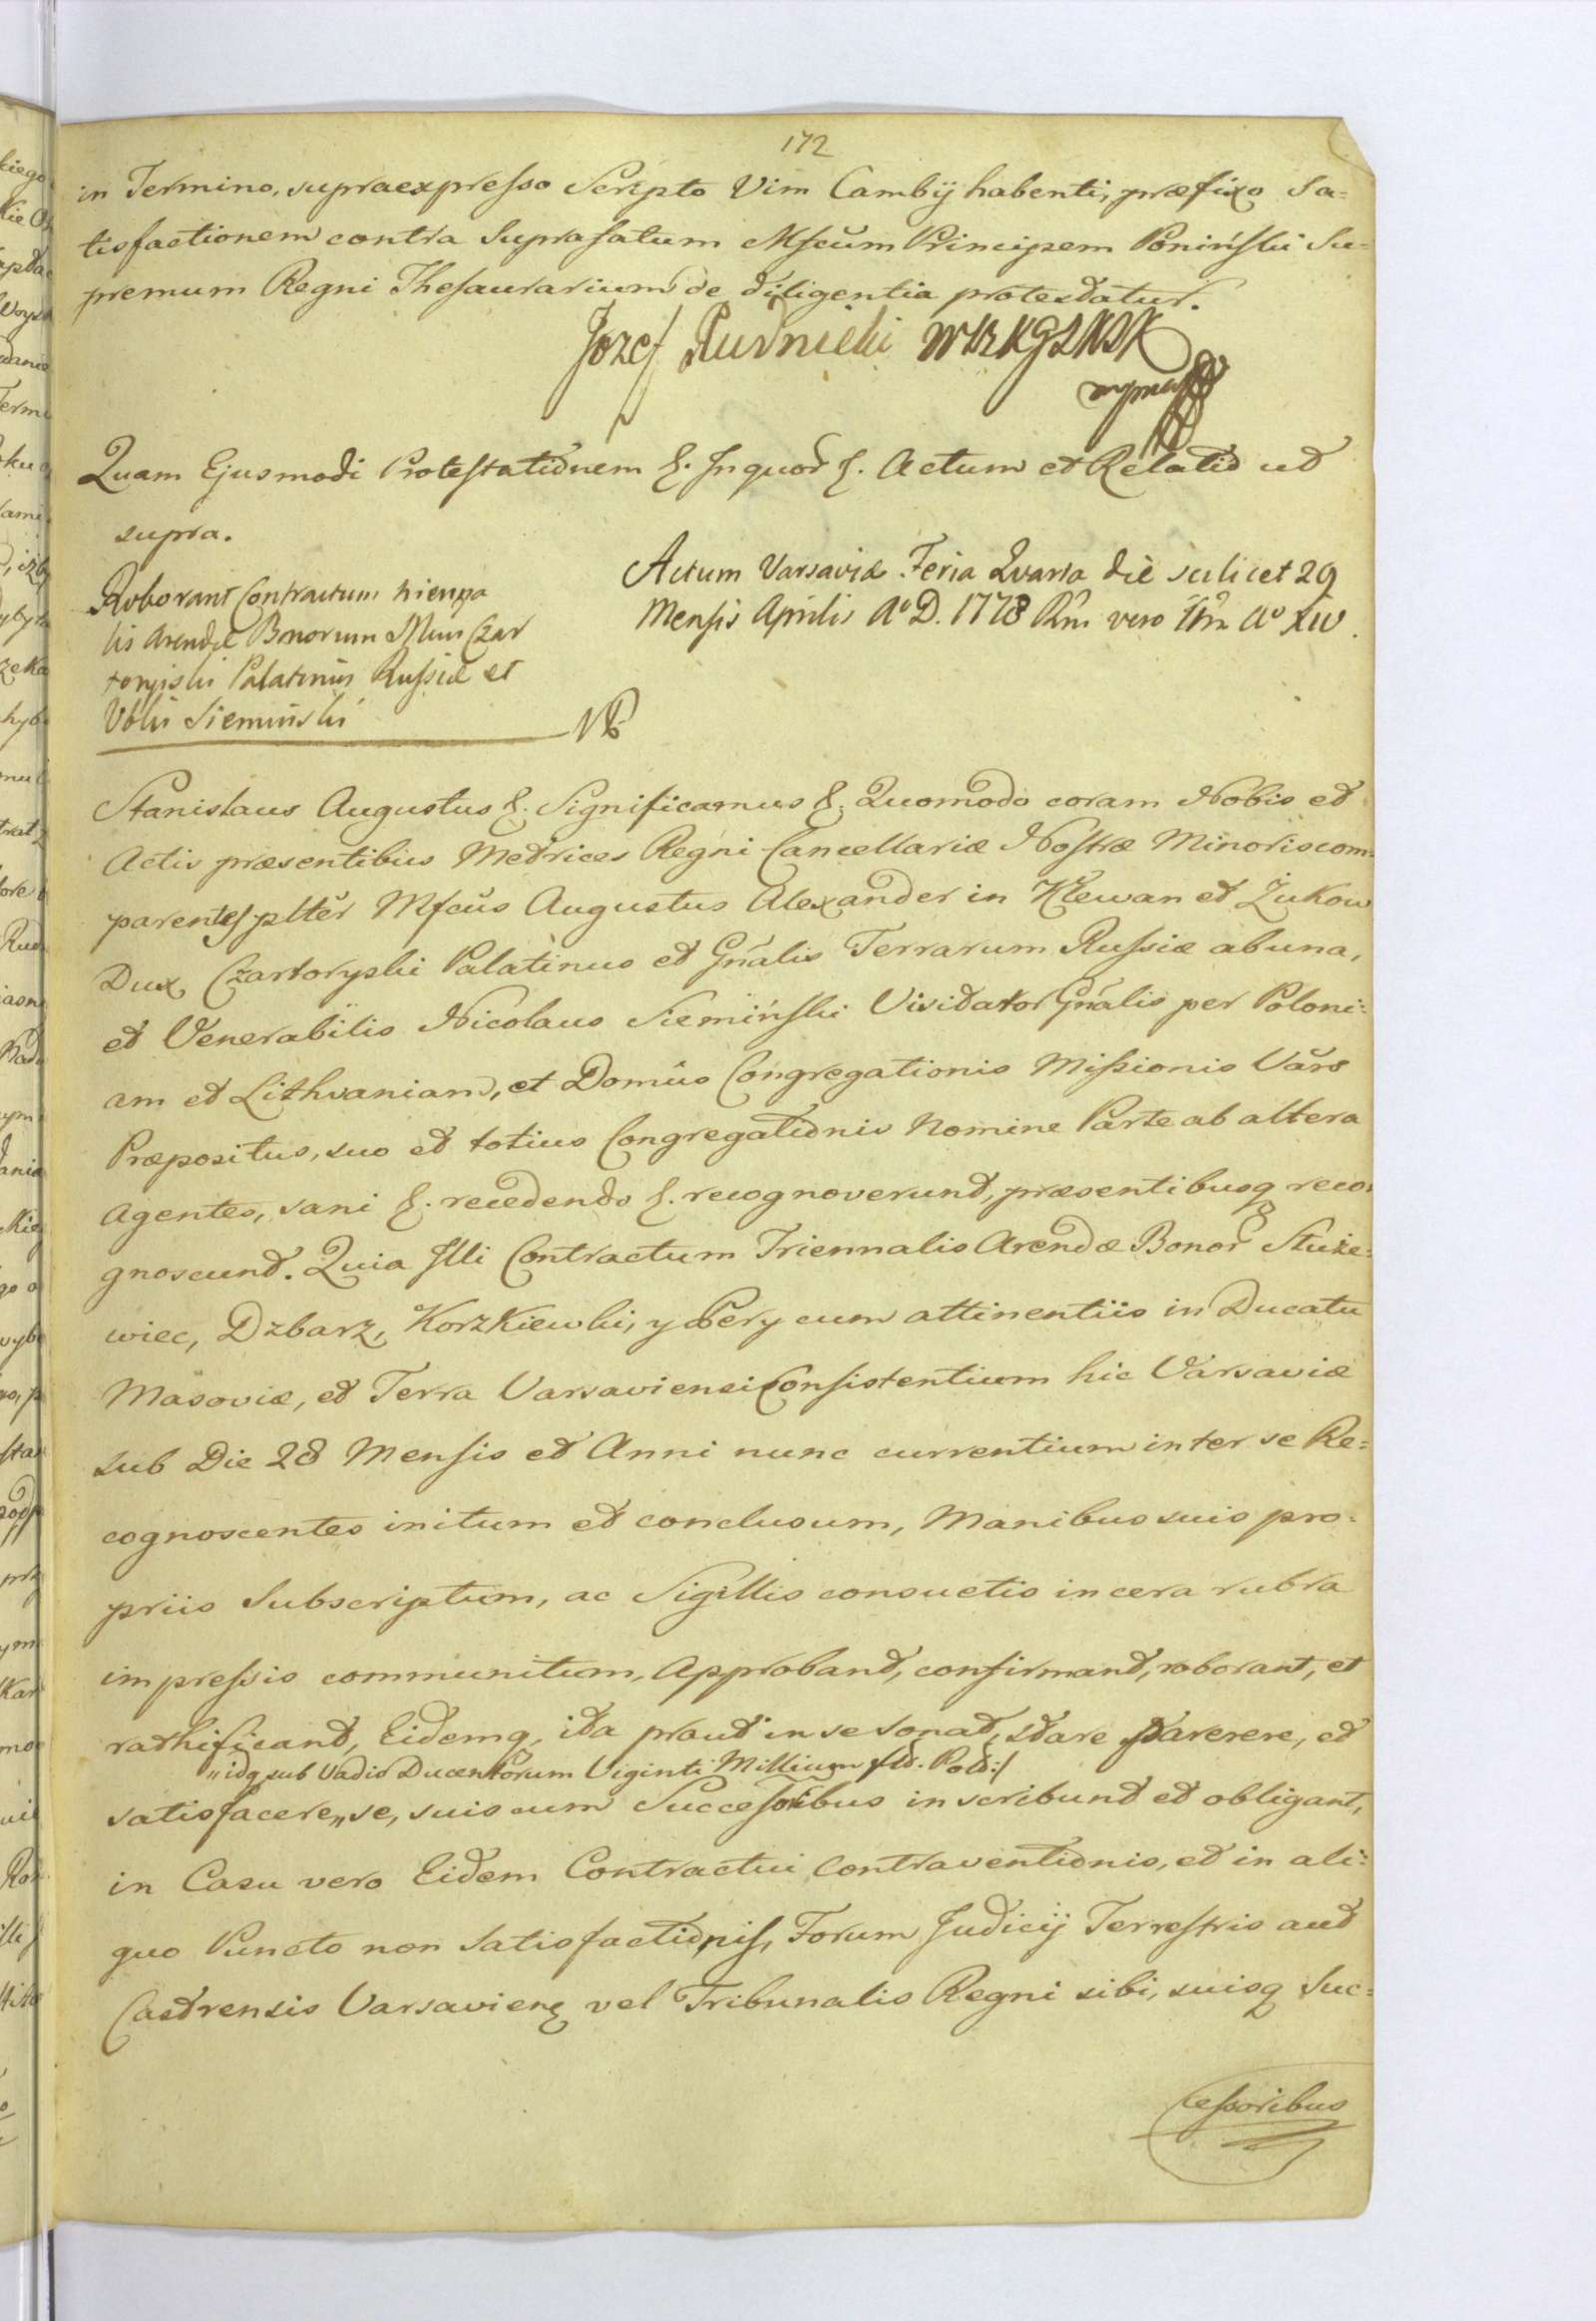 172
in Termino, supraexpresso Scripto Vim Cambÿ habenti, præfixo Sa=
tisfactionem contra Suprafatum Mfcum Principem Poniński Su=
premum Regni Thesaurarium de diligentia protestatur.
Jozef Rudnicki
Quam Ejusmodi Protestationem &. Inquor &. Actum et Relatio ut
supra.
Actum Varsaviæ Feria Quarta die scilicet 29
Mensis Aprilis Aº D. 1778 Rni vero Aº XIV.
Roborant Contractum
lis Arendæ Bonorum Czar
toryiski Palatinus Russiæ et
Vblis Siemiński
NB
Stanislaus Augustus &. Significamus &. Quomodo coram Nobis et
Actis præsentibus Metrices Regni Cancellariæ Nostræ Minoris com=
parentes pltër Mfcus Augustus Alexander in Klewan et Żukow
Dux Czartoryski Palatinus et Gnalis Terrarum Russiæ ab una,
et Venerabilis Nicolaus Siemiński Visitator Gnalis per Poloni=
am et Lithvaniam, et Domûs Congregationis Missionis Vars
Præpositus, suo et totius Congregationis Nomine Parte ab altera
Agentes, sani &. recedendo &. recognoverunt, præsentibusq reco=
gnoscunt. Quia Illi Contractum Triennalis Arendæ Bonor Służe=
wiec, Dzbarz, Korzkiewki, y Pery cum attinentiis in Ducatu
Masoviæ, et Terra Varsaviensi Consistentium hic Varsaviæ
sub Die 28 Mensis et Anni nunc currentium inter se Re=
cognoscentes initum et conclusum, Manibus suis pro=
priis Subscriptum, ac Sigillis consuetis in cera rubra
impressis communitum, Approbant, confirmant, roborant, et
rathificant, Eidemq, ita prout in se sonat, stare parerere, et
„idq sub Vadio Ducentorum Viginti Millium flo. Pold:/
satisfacere „se, suis cum Successoribus inscribunt et obligant,
in Casu vero Eidem Contractui Contraventionis, et in ali=
quo Puncto non Satisfactionis, Forum Judicij Terrestris aut
Castrensis Varsaviens vel Tribunalis Regni sibi, suisq Suc=
cessoribus